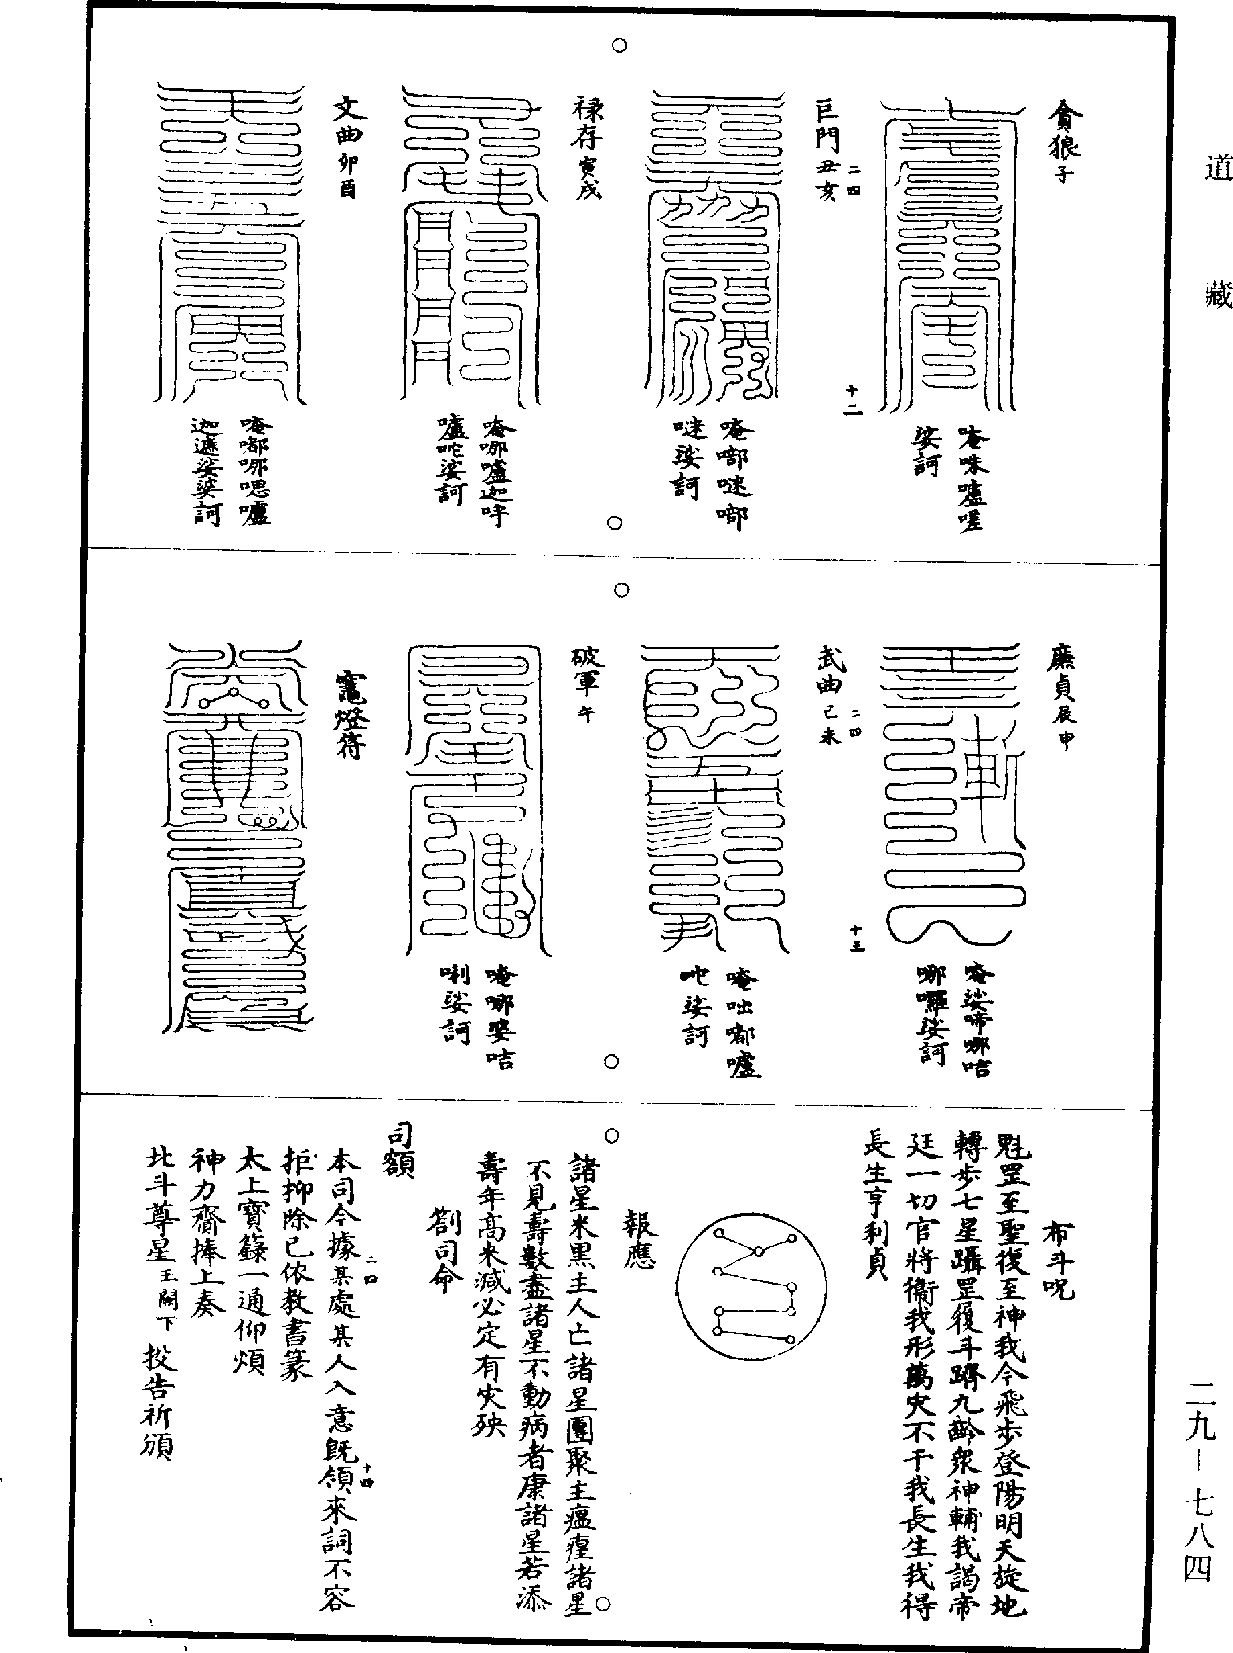 道藏
貪狼子
唵咮嚧嗟
娑訶
巨門丑亥
二四
十二
唵㗔𠺗㗔
娑訶
祿存寅戌
唵哪嚧迦吽
嚧吔娑訶
文曲卯酉
唵嘟哪嗯嚧
迦遮娑婆訶
廉貞辰申
唵娑啼哪咭
哪囉娑訶
武曲巳未
二四
十三
唵咄嘟嚧
吔娑訶
破軍午
唵哪婆咭
唎娑訶
竈燈符
布斗呪
魁罡至聖復至神我今飛步登陽明天旋地
轉步七星躡罡履斗躋九齡衆神輔我謁帝
廷一切官將衞我形萬灾不干我長生我得
長生亨利貞
報應
諸星米黑主人亡諸星團聚主瘟㾮諸星
不見壽數盡諸星不動病者康諸星若添
壽年高米減必定有灾殃
劄司命
司額
本司今據某處某人入意旣領來詞不容
二四
十四
拒抑除已依教書篆
太上寶籙一通仰煩
神力齎捧上奏
北斗尊星玉闕下投告祈頒
二九－七八四